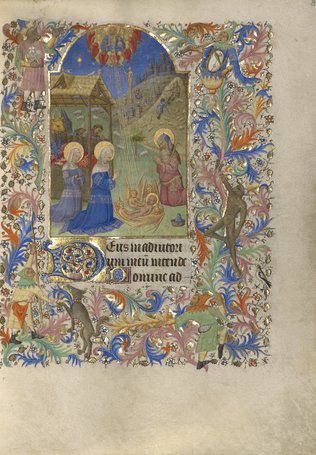 Deus in adiutori
um meum intende
Domine ad